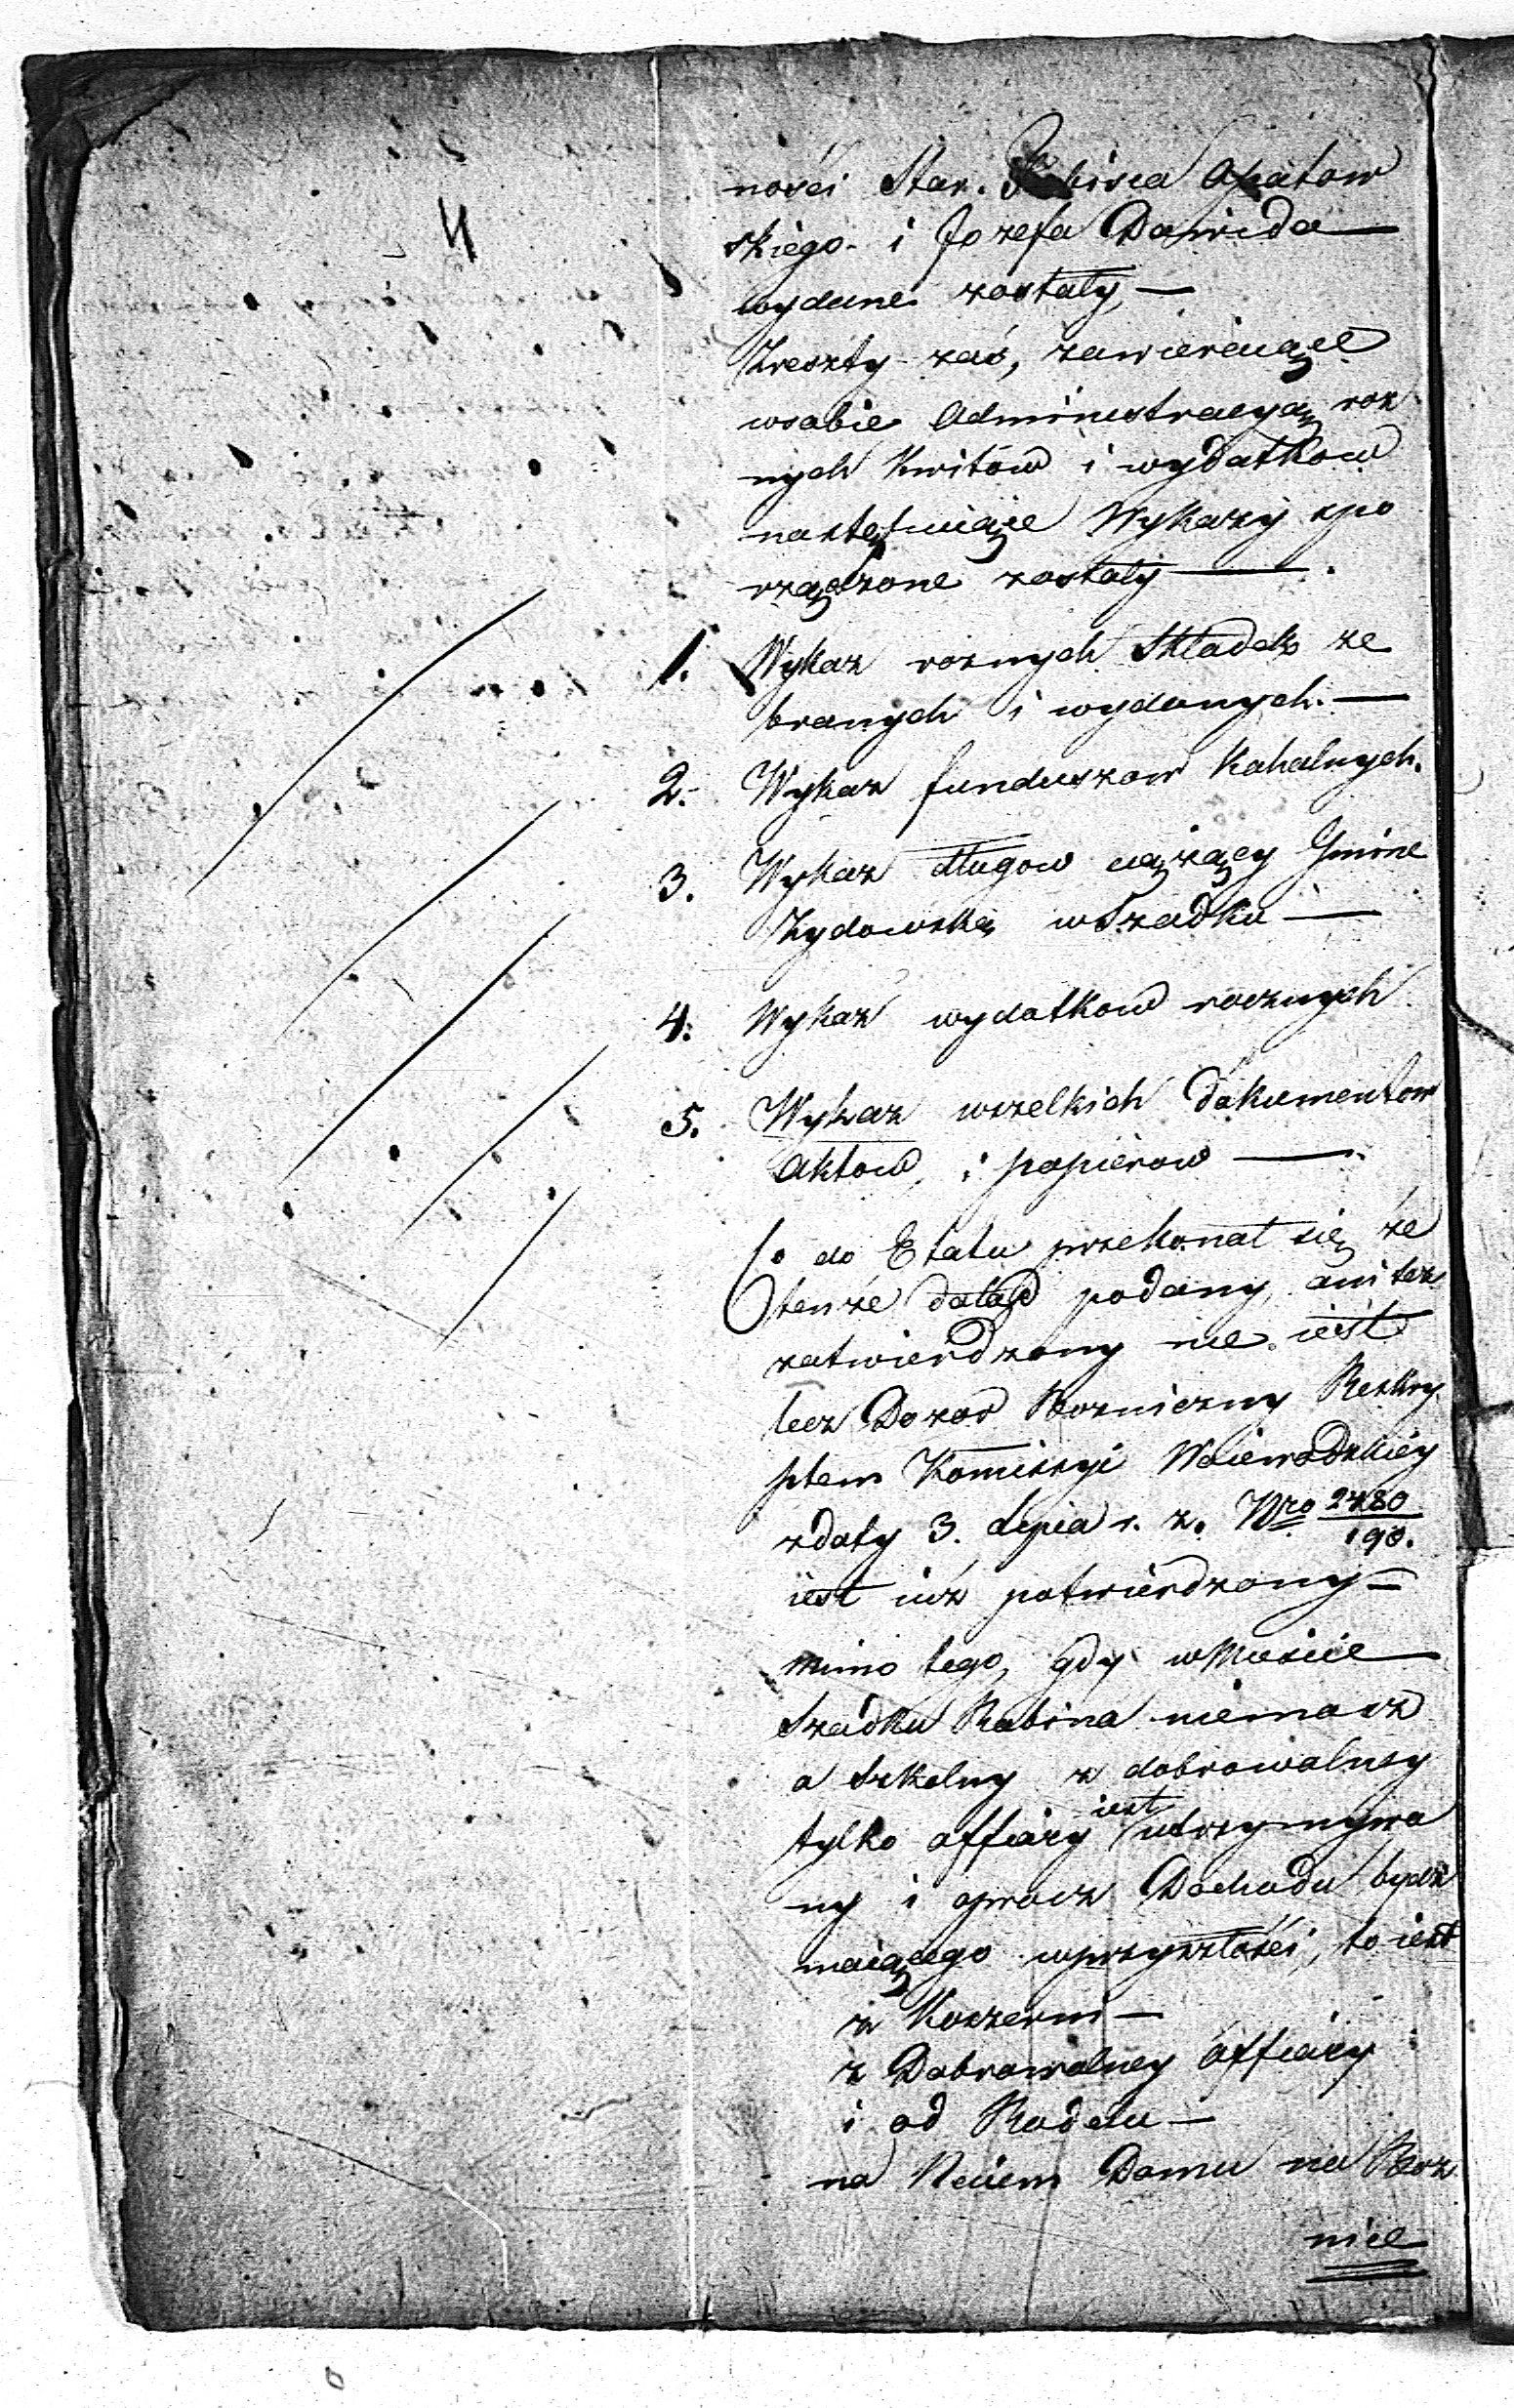 4
ności Star. Opatow
skiego i Jozefa Dawida —
wydane zostały, —
Zreszty zaś, zawieraiące
wsobie Administracyą roz
nych Kwitów i wydatkow
nastęmuiące Wykazy spo
rządzone zostały —.
1. Wykaz roznych Składek ze
branych i wydanych. —
2. Wykaz funduszow Kahalnych.
3. Wykaz długow ciążący Gmine
Zydowską wSzadku —
4. Wykaz wydatkow rocznych
5. Wykaz wszelkich Dokumentow
Aktow, i papierow —
Co do Etatu przekonał się że
tenże dotąd podany, ani tez
zatwierdzony nie iest
lecz Dozor Bozniczny Reskry
ptem Komissyi Woiewodzkiey
zdaty 3. Lipca r. z. Nro 2480/190.
iest iuż potwierdzony —
mimo tego, gdy wMieście —
Szadku Rabina niemasz
a Szkolny z dobrowolney
tylko offiary iest utrzymywa
ny i oprocz Dochodu bydź
maiącego wprzyszłości, to iest
z Koszerni —
z Dobrowolney offiary
i od Rodału —
na Naiem Domu na Boz
nice